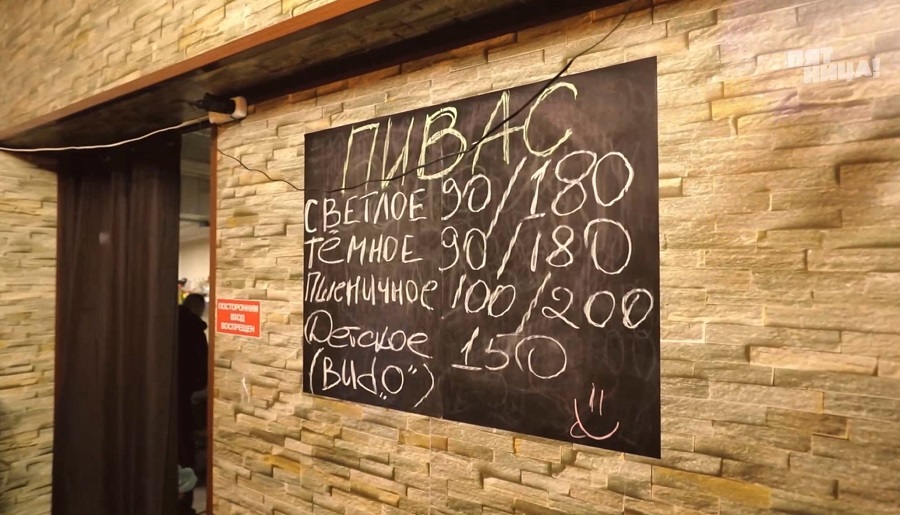 ПЯТ
НИЦА!
ПИВАС
СВЕТЛОЕ 90/180
ТЁМНОЕ 90/180
Пшеничное 100/200
Детское 150
(Видо")
ПОСТОРОННИМ
ВХОД
ВОСПРЕЩЕН